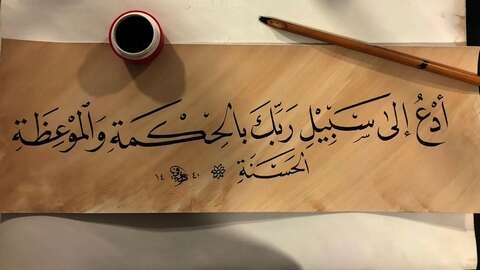 أدْعُ إلىٰ سَبِيْلِ رَبِّكَ بالْحِكْمَةِ وَالْمَوْعِظَةِ
الحَسَنَةِ
١٤ ٤١